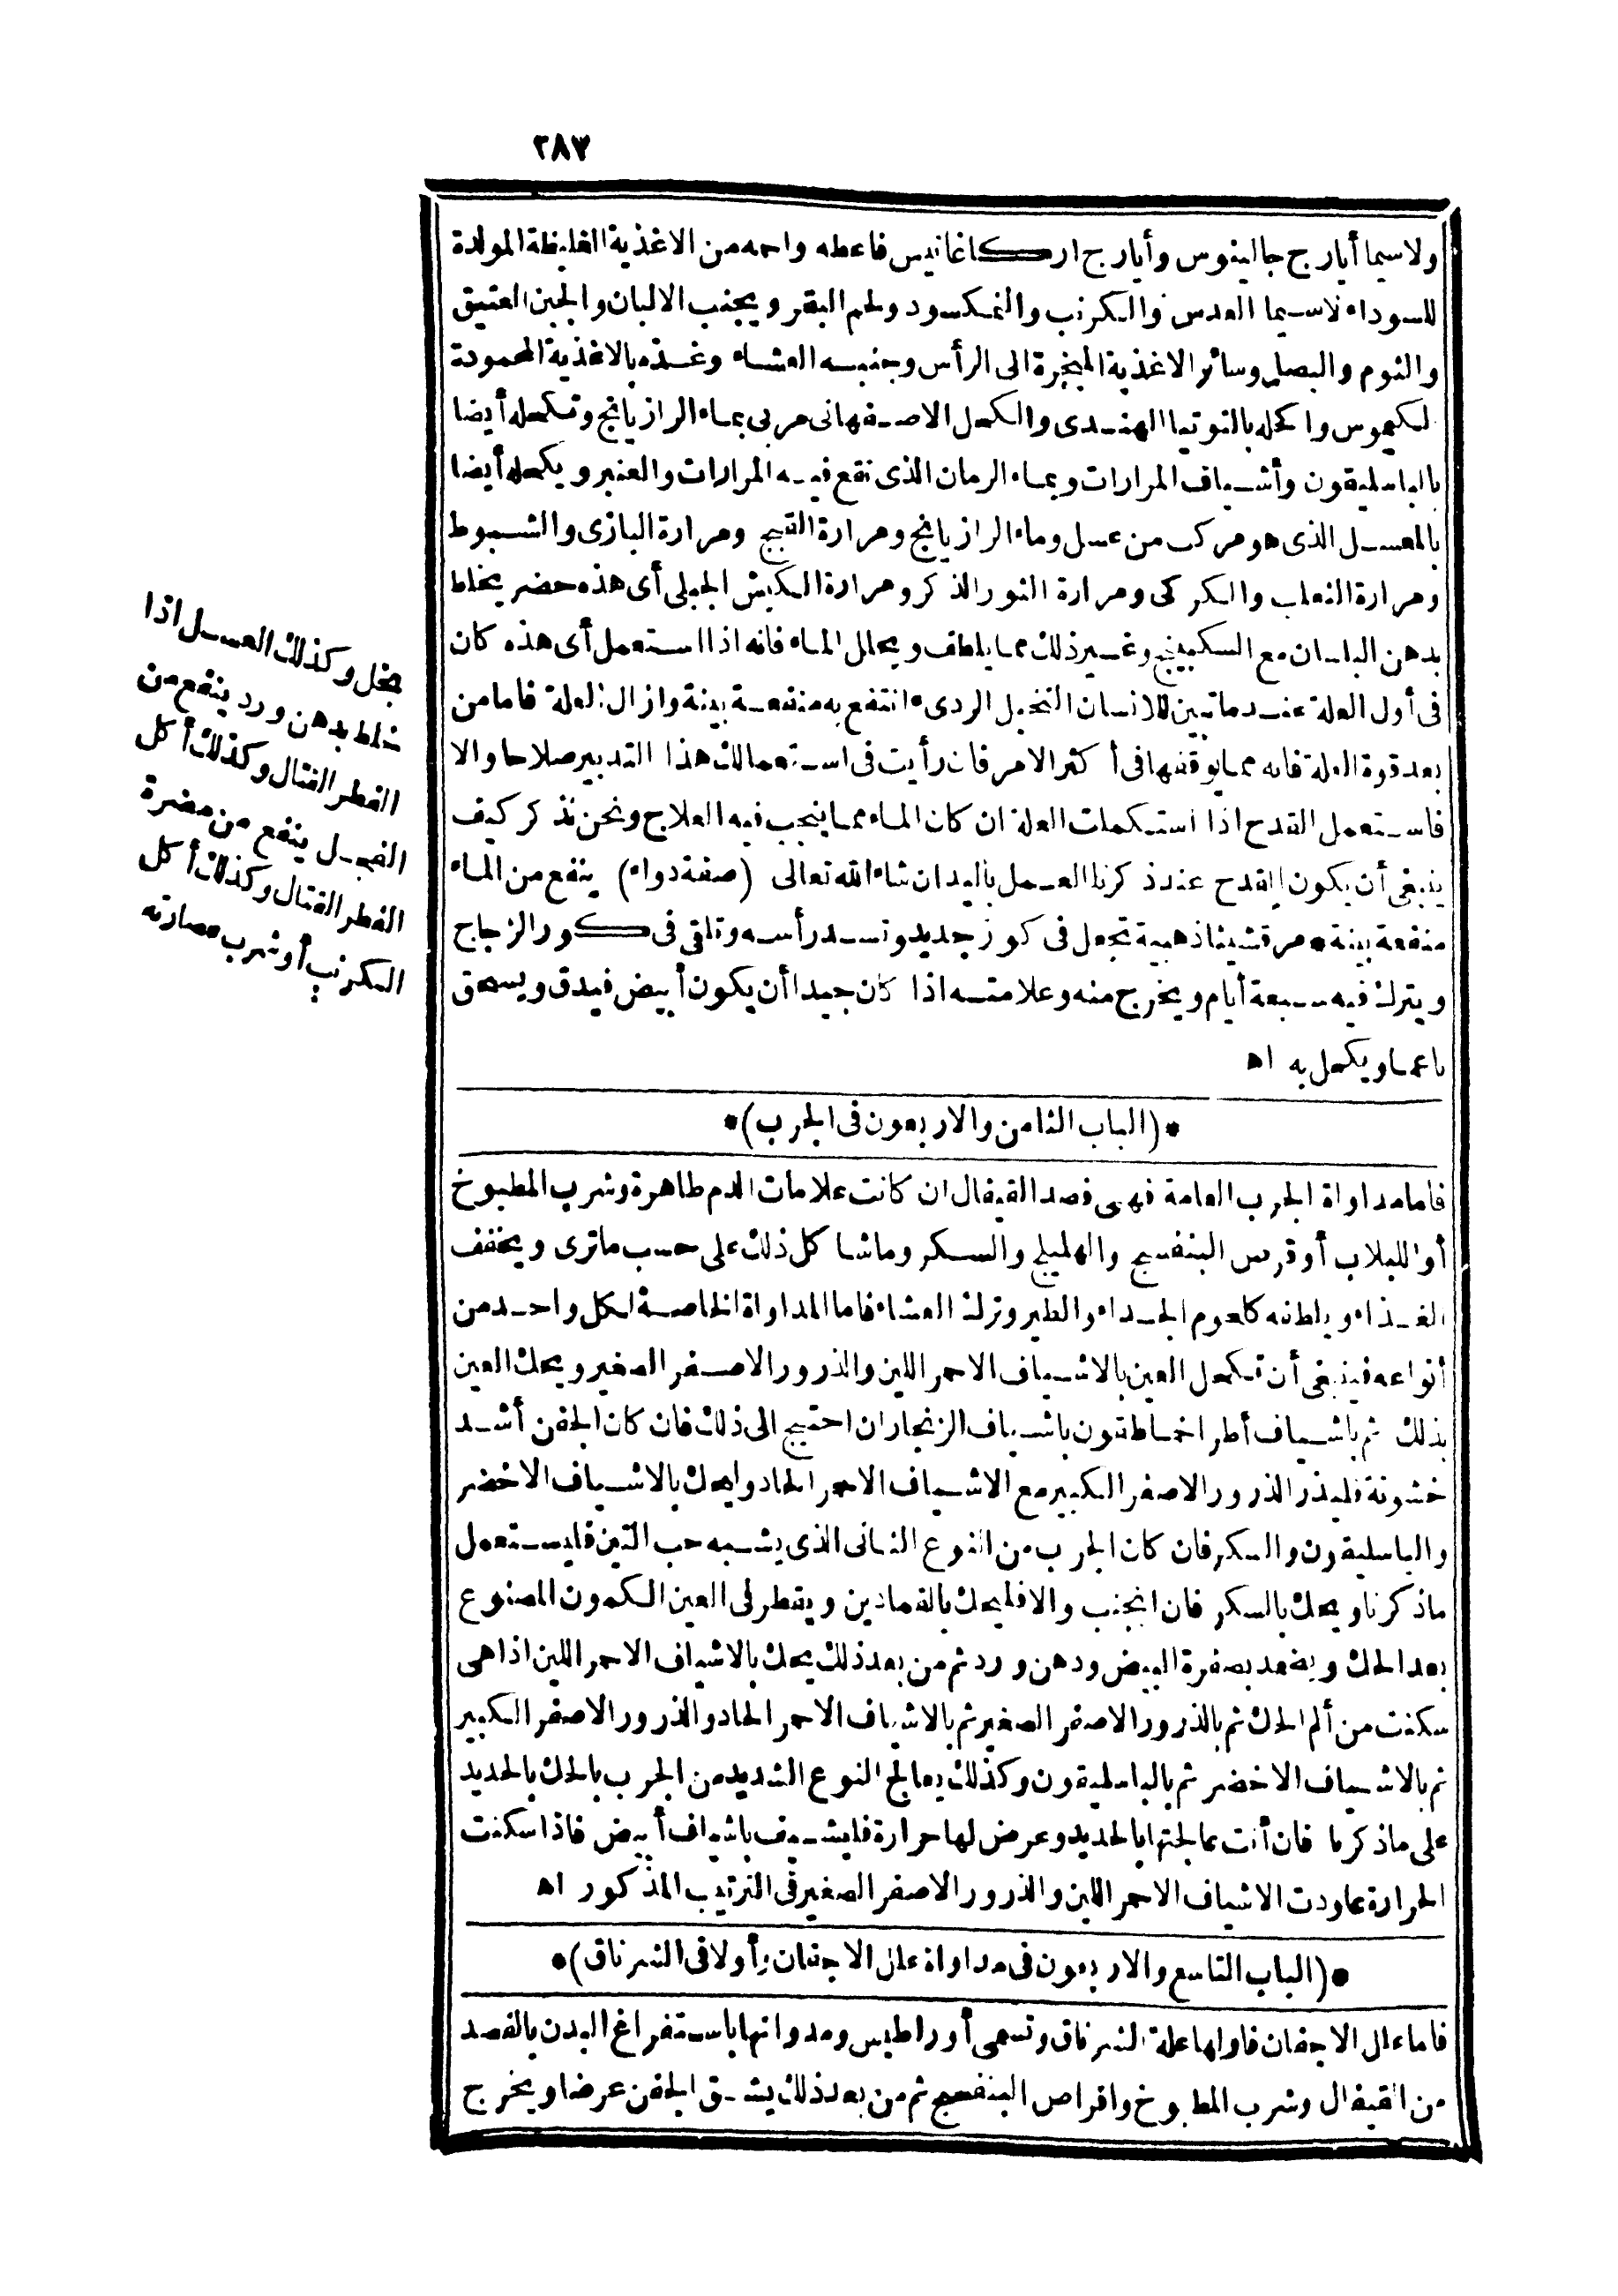 ٢٨٧
ولاسيما أيارج جالينوس وأيارج اركاغانيس فاعطه واحمه من الاغذية الغليظة المولدة
للسوداء لاسيما العدس والكرنب والنمكسود ولحم البقر ويجنب الالبان والجبن العتيق
والثوم والبصل وسائر الاغذية المبخرة الى الرأس وجنبه العشاء وغذه بالاغذية المحمودة
الكيموس واكحله بالتوتيا الهندى والكحل الاصفهانى مربى بماء الرازيانج وتكحله أيضا
بالباسليقون وأشياف المرارات وبماء الرمان الذى نقع فيه المرارات والعنبر ويكحله أيضا
بالعسل الذى هو مركب من عسل وماء الرازيانج ومرارة القبج ومرارة البازى والشبوط
ومرارة الثعلب والكركى ومرارة الثور الذكر ومرارة الكبش الجبلى أى هذه حضر يخلط
بدهن البلسان مع السكبينج وغير ذلك مما يلطف ويحلل الماء فانه اذا استعمل أى هذه كان
فى أول العلة عندما تبين للانسان التخيل الردىء انتفع به منفعة بينة وازال العلة فاما من
بعد قوة العلة فانه مما يوقفها فى أكثر الامر فان رأيت فى استعمالك هذا التدبير صلاحا والا
فاستعمل القدح اذا استكملت العلة ان كان الماء مما ينجب فيه العلاج ونحن نذكر كيف
ينبغى أن يكون القدح عند ذكرنا العمل باليد ان شاء الله تعالى (صفة دواء) ينفع من الماء
منفعة بينة * مرقشيثا ذهبية تجعل فى كوز جديد وتسد رأسه وتلقى فى كور الزجاج
ويترك فيه سبعة أيام ويخرج منه وعلامته اذا كان جيدا أن يكون أبيض فيدق ويسحق
ناعما ويكحل به اه
*(الباب الثامن والاربعون فى الجرب)*
فاما مداواة الجرب العامة فهى فصد القيفال ان كانت علامات الدم ظاهرة وشرب المطبوخ
أو اللبلاب أو قرص البنفسج والهليلج والسكر وماشا كل ذلك على حسب ماترى ويخفف
الغذاء ويلطفه كلحوم الجداء والطير وترك العشاء فاما المداواة الخاصة لكل واحد من
أنواعه فينبغى أن تكحل العين بالاشياف الاحمر اللين والذرور الاصفر الصغير ويحك العين
بذلك ثم باشياف أطراخماطقون باشياف الزنجار ان احتيج الى ذلك فان كان الجفن أشد
خشونة فليذر الذرور الاصفر الكبير مع الاشياف الاحمر الحاد وليحك بالاشياف الاخضر
والباسليقون والسكر فان كان الجرب من النوع الثانى الذى يشبه حب التين فليستعمل
ماذكرنا ويحك بالسكر فان انجذب والا فليحك بالقمادين ويقطر فى العين الكمون المصنوع
بعد الحك ويضمد بصفرة البيض ودهن ورد ثم من بعد ذلك يحك بالاشياف الاحمر اللين اذا هى
سكنت من ألم الحك ثم بالذرور الاصفر الصغير ثم بالاشياف الاحمر الحاد والذرور الاصفر الكبير
ثم بالاشياف الاخضر ثم بالباسليقون وكذلك يعالج النوع الشديد من الجرب بالحك بالحديد
على ماذكرنا فان أنت عالجتها بالحديد وعرض لها حرارة فليشيف باشياف أبيض فاذا سكنت
الحرارة عاودت الاشياف الاحمر اللين والذرور الاصفر الصغير فى الترتيب المذكور اه
*(الباب التاسع والاربعون فى مداواة علل الاجفان وأولا فى الشرناق)*
فاما علل الاجفان فاولها علة الشرناق وتسمى أوراطيس ومدوانها باستفراغ البدن بالفصد
من القيفال وشرب المطبوخ واقراص البنفسج ثم من بعد ذلك يشق الجفن عرضا ويخرج
بخل وكذلك العسل اذا
خلط بدهن ورد ينفع من
الفطر القتال وكذلك أكل
الفجل ينفع من مضرة
الفطر القتال وكذلك أكل
الكرنب أو شرب عصارته